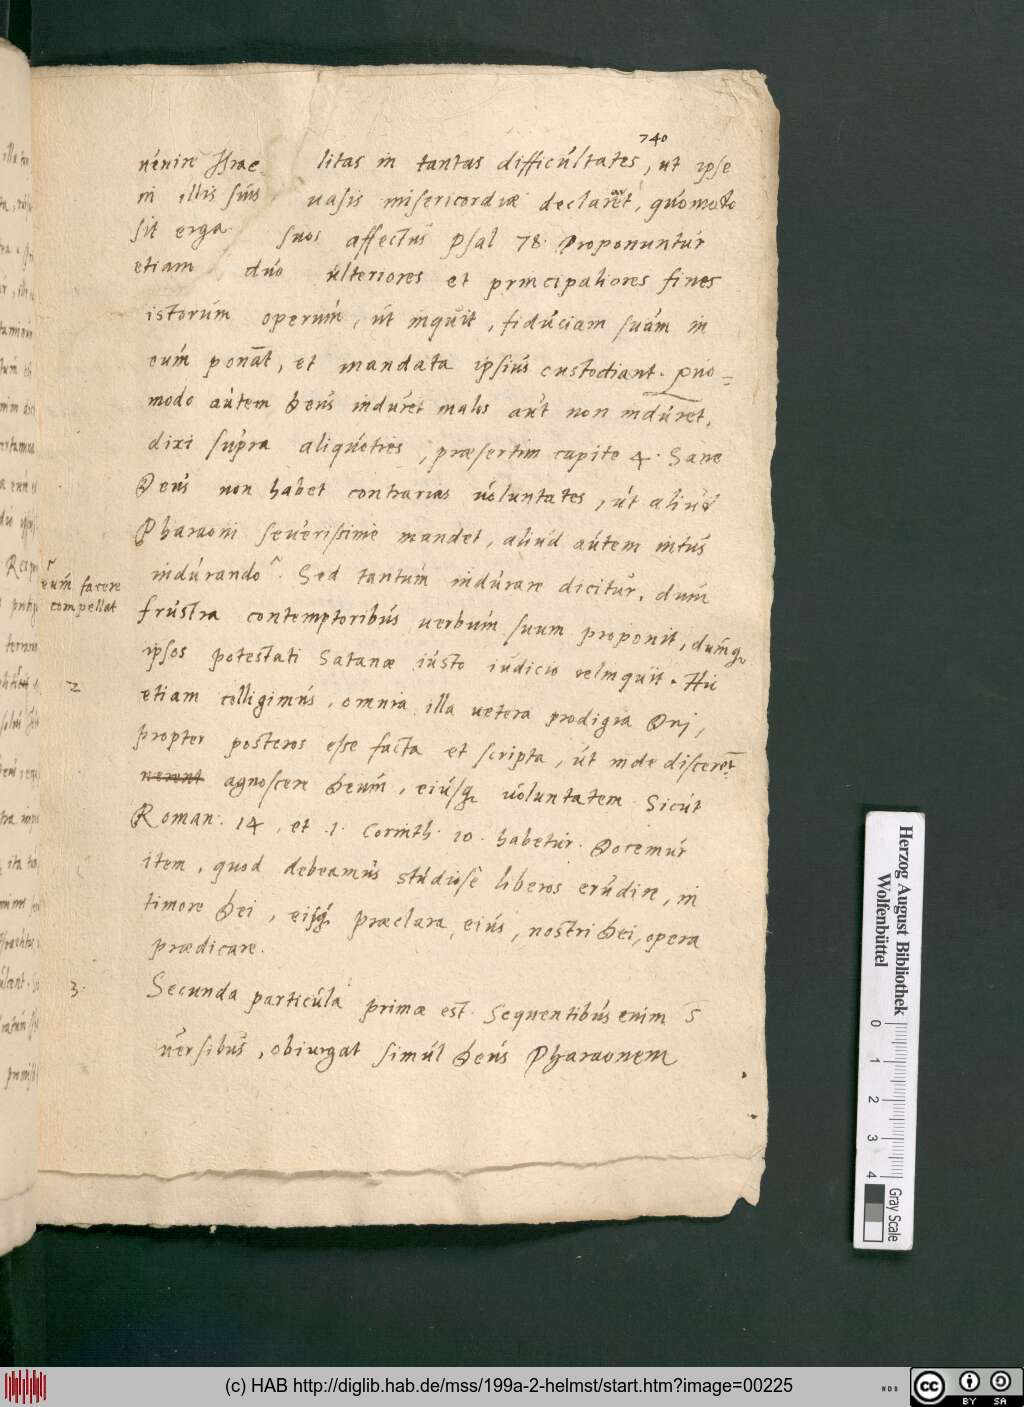 740
uenire Israe litas in tantas difficúltates, ut ipse
in illis suis uasis misericordiæ declaret, quomodo
sit erga suos affectus Psal 78. Proponuntúr
etiam dúo últeriores et principaliores fines
istorúm operúm, út inquit, fidúciam súam in
eúm ponāt, et mandata ipsiús custodiant. Quo=
modo aútem Deús induret malos aút non indúret,
dixi súpra aliquoties, præsertim capite 4. Sane
Deús non habet contrarias uóluntates, út aliúd
Pharaoni seuerissime mandet, aliúd aútem intús
indúrando. Sed tantúm indúrare dicitúr, dúm
eúm facere
compellat
frústra contemptoribús uerbúm suum proponit, dúmq
ipsos potestati Satanæ iústo iúdicio relinquit. Hic
2
etiam colligimús, omnia illa uetera prodigia Dej,
propter posteros esse facta et scripta, út inde discerēt
agnoscere Deúm, eiúsq uóluntatem. Sicút
Roman. 14, et 1. Corinth. 10. habetúr. Docemúr
item, quod debeamús stúdiose liberos erúdire, in
timore Dei, eisq præclara eiús, nostri Dei, opera
prædicare.
3.
Secunda particúla primæ est. Sequentibús enim 5
úersibus, obiurgat simúl Deús Pharaonem
Herzog August Bibliothek
Wolfenbüttel
0 1 2 3 4
Gray Scale
(c) HAB http://diglib.hab.de/mss/199a-2-helmst/start.htm?image=00225
cc BY SA